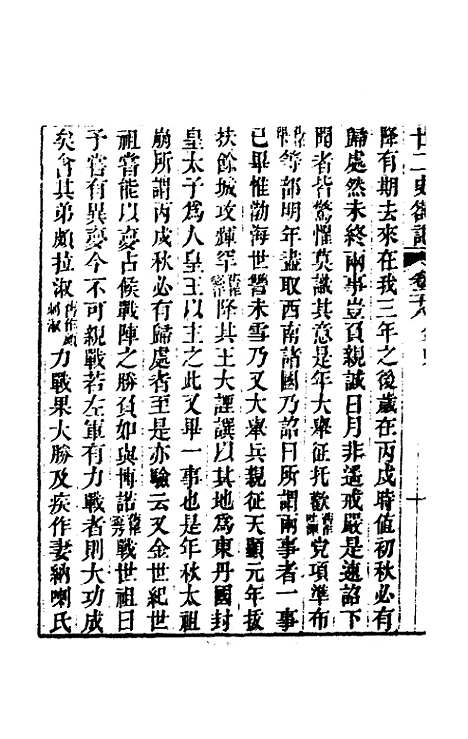 廿二史劄記 卷二十八 金史 十
降有期去來在我三年之後歲在丙戌時值初秋必有
歸處然未終兩事豈負親誠日月非遙戒嚴是速詔下
聞者皆驚懼莫識其意是年大舉征托歡党項準布
等部明年盡取西南諸國乃詔曰所謂兩事者一事
已畢惟渤海世讐未雪乃又大舉兵親征天顯元年拔
扶餘城攻輝罕降其王大諲譔以其地爲東丹國封
皇太子爲人皇王以主之此又畢一事也是年秋太祖
崩所謂丙戌秋必有歸處者至是亦驗云又金世紀世
祖嘗能以夢占候戰陣之勝負如與博諾戰世祖曰
予嘗有異夢今不可親戰若左軍有力戰者則大功成
矣令其弟頗拉淑舊作頗剌淑力戰果大勝及疾作妻納喇氏